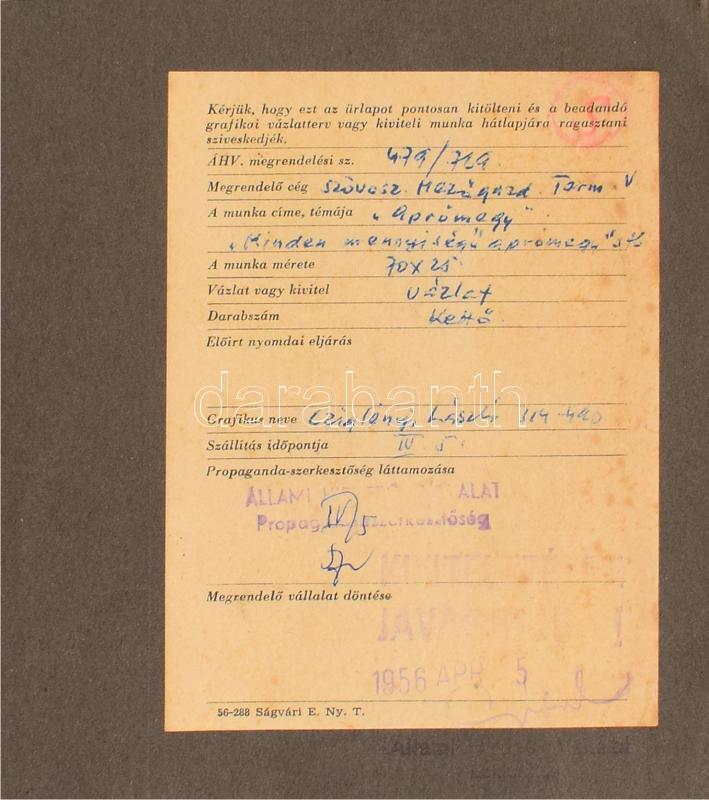 Kérjük, hogy ezt az űrlapot pontosan kitölteni és a beadandó
grafikai vázlatterv vagy kiviteli munka hátlapjára ragasztani
szíveskedjék.
ÁHV. megrendelési sz. 479/719
Megrendelő cég Szövosz. Mezőgazd. Term. V
A munka címe, témája „Aprómagy"
„Minden mennyiségű aprómagy"
A munka mérete 70x25
Vázlat vagy kivitel vázlat
Darabszám Kettő
Előirt nyomdai eljárás
darabanth
Grafikus neve László
Szállítás időpontja IV. 5.
Propaganda-szerkesztőség láttamozása
ÁLLAMI
IV/5
Megrendelő vállalat döntése
1956 APR 5
56-288 Ságvári E. Ny. T.